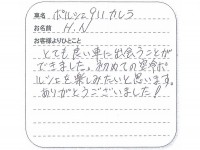 車名 ポルシェ911カレラ
お名前 H.N
お客様よりひとこと
とても良い車に出会うことが
できました。初めての空冷ポ
ルシェを楽しみたいと思います。
ありがとうございました!